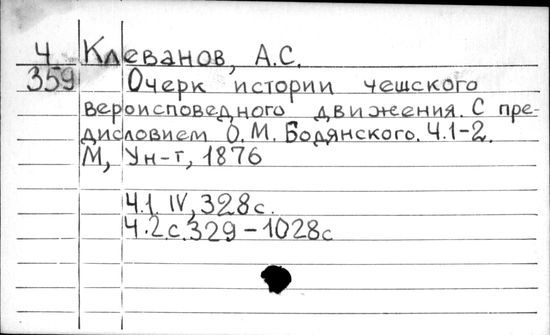 Ч Клеванов, А.С.
359 Очерк истории чешского
вероисповедного движения. С пре-
дисловием О.М. Бодянского. Ч.1-2.
М, Ун-т, 1876
Ч.1. IV, 328с.
Ч.2.с.329-1028с